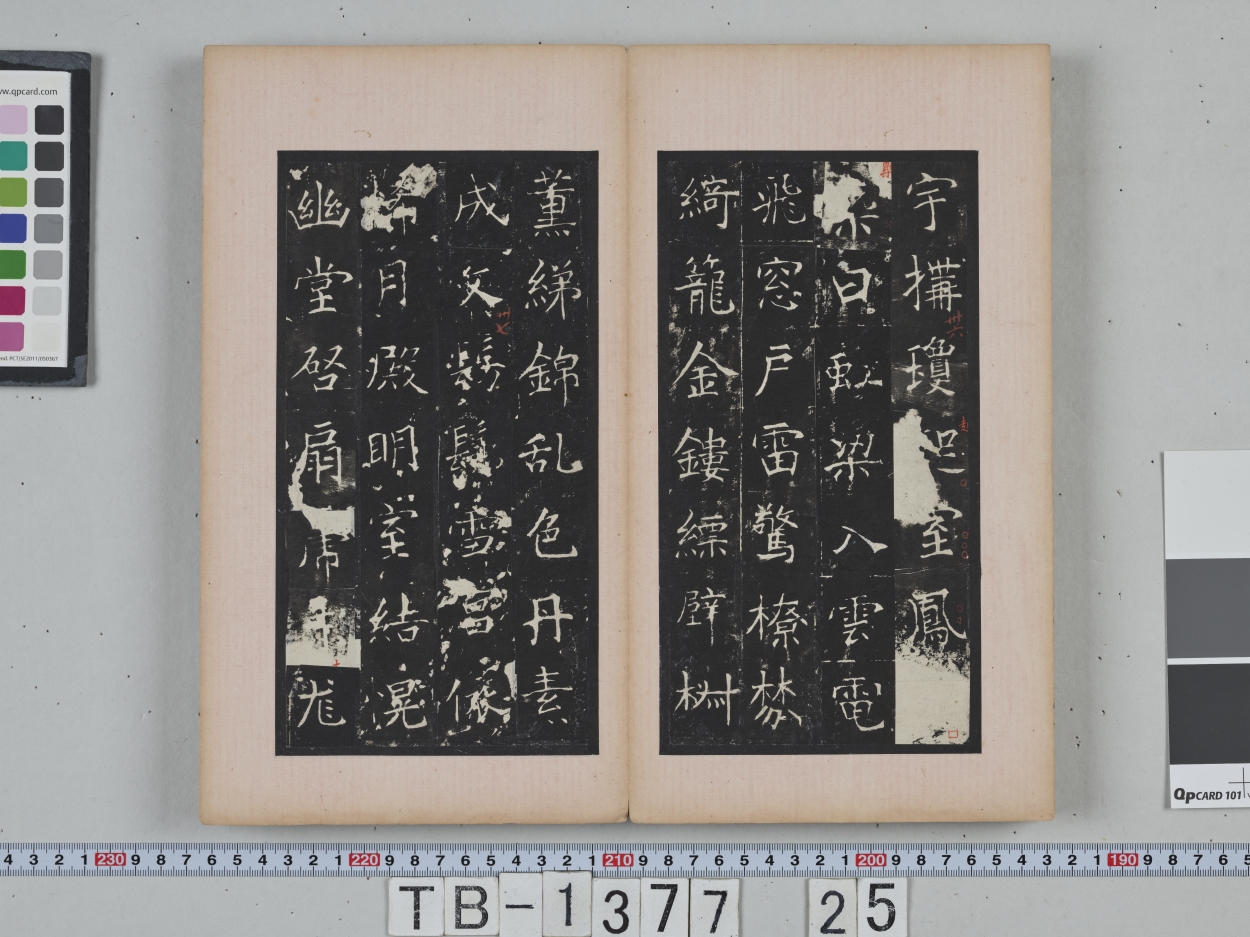 宇構瓊室鳳
白虹梁入雲電
飛窓戸雷驚橑棼
綺籠金鏤縹壁椒
薰綈錦乱色丹素
成文雪
月殿明室結滉
幽堂啓扇
卅六
卅七
www.qpcard.com
QpCARD 101
4 3 2 1 230 9 8 7 6 5 4 3 2 1 220 9 8 7 6 5 4 3 2 1 210 9 8 7 6 5 4 3 2 1 200 9 8 7 6 5 4 3 2 1 190 9 8 7 6 5
TB-1377 25